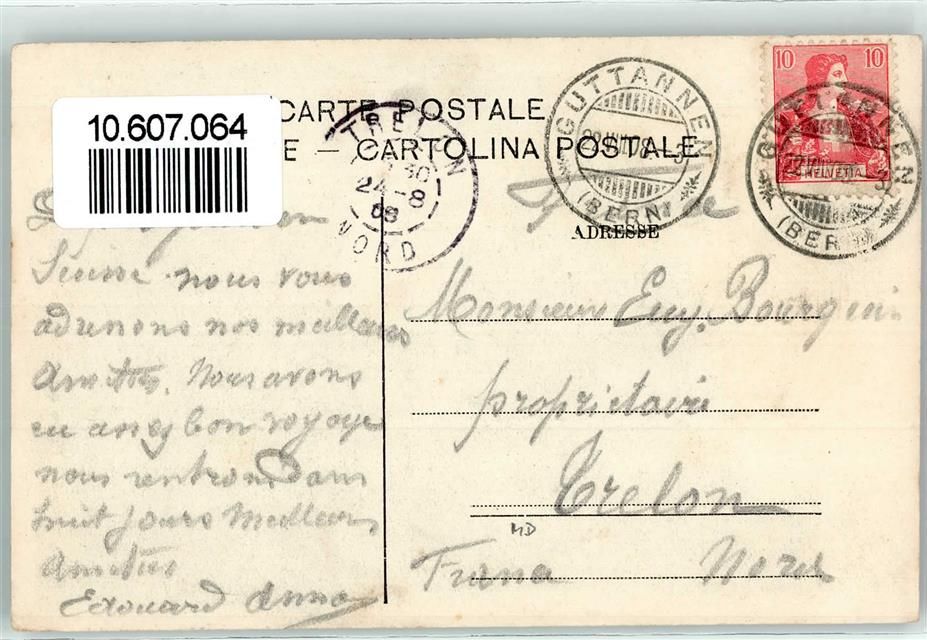 10.607.064
CARTE POSTALE
E — CARTOLINA POSTALE
TRELON
24-8
08
NORD
GUTTANNEN
(BERN)
10 10
HELVETIA
GUTTANNEN
(BERN)
ADRESSE
Suisse nous vous
adressons nos meilleures
Amitiés. Nous avons
eu assez bon voyage
nous rentrons dans
huit jours Meilleurs
Amitiés
Edouard Anna
Monsieur Eug. Bourguin
propriétaire
Trelon
MD
France Nord